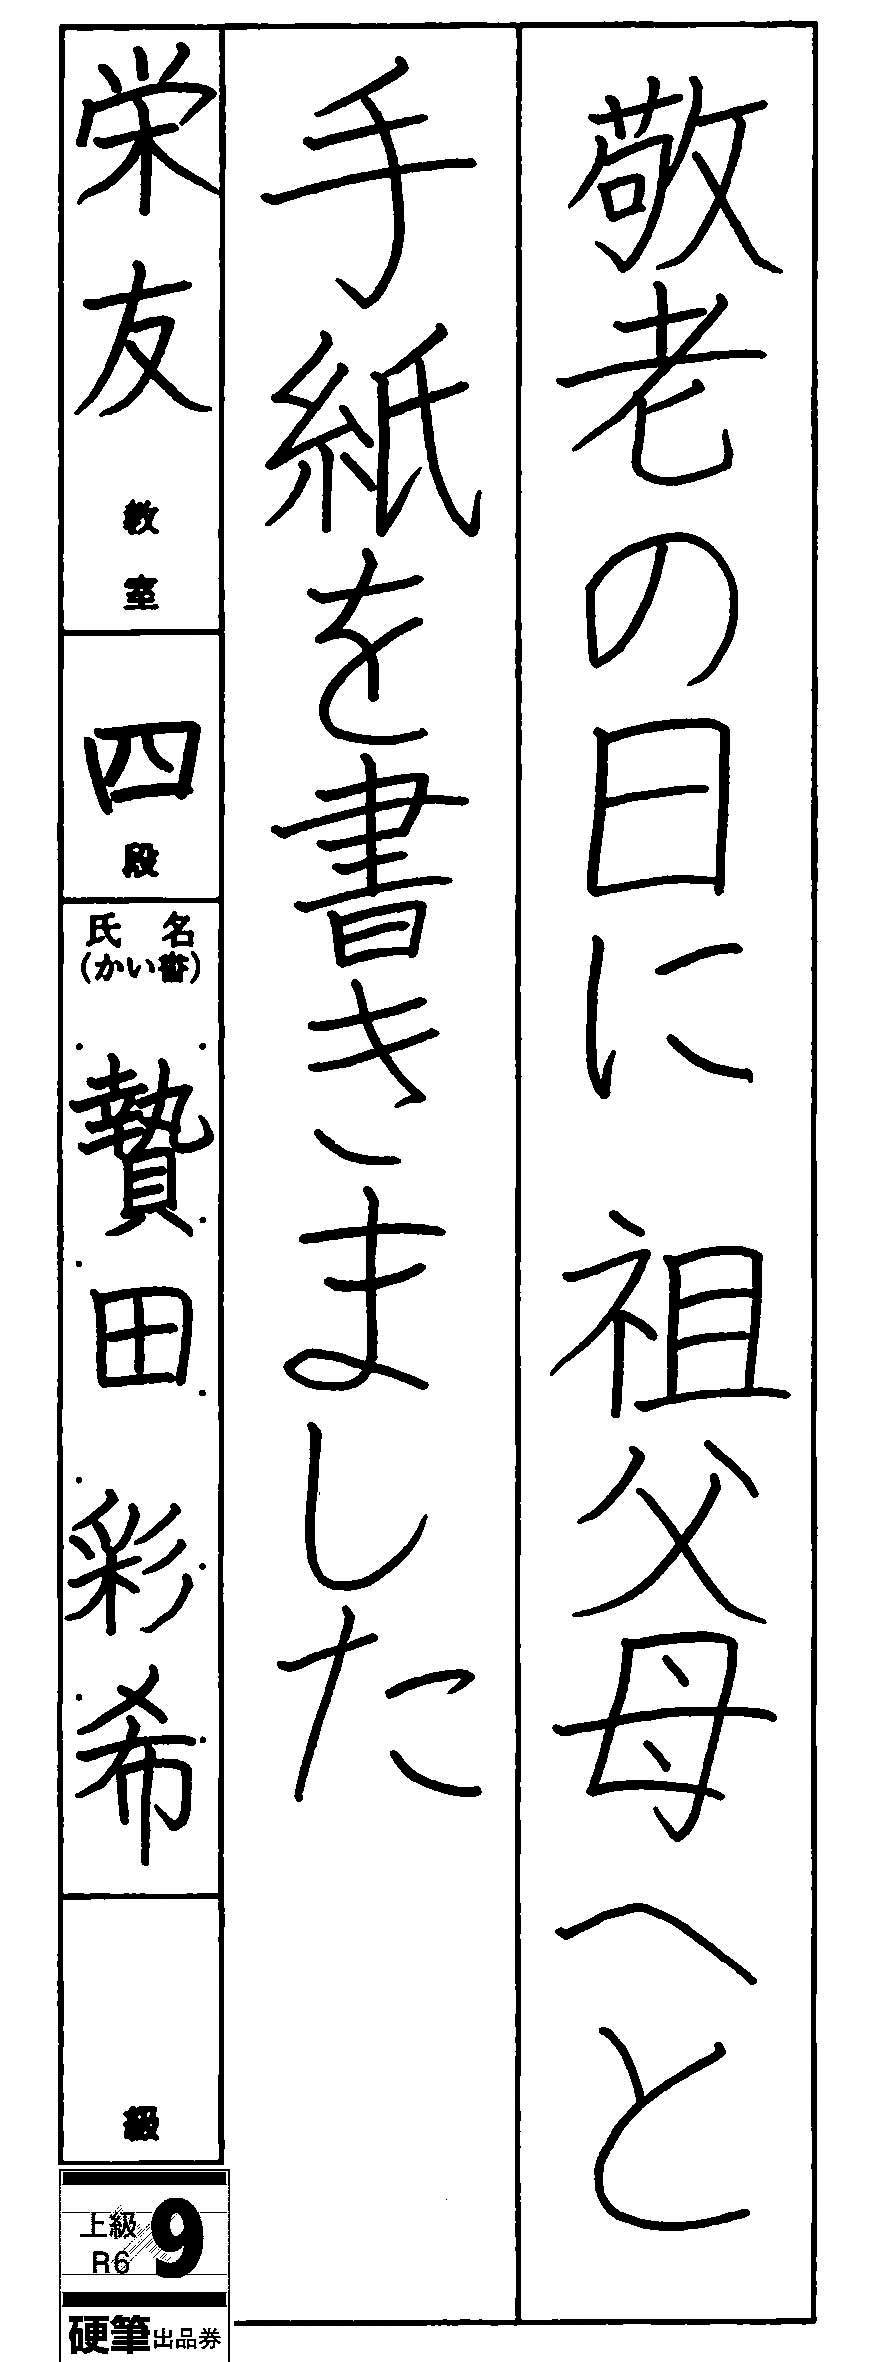 敬老の日に 祖父母へと
手紙を書きました
栄友教室
四段
氏名
(かい書)
贄田 彩希
級
上級
R6
9
硬筆出品券